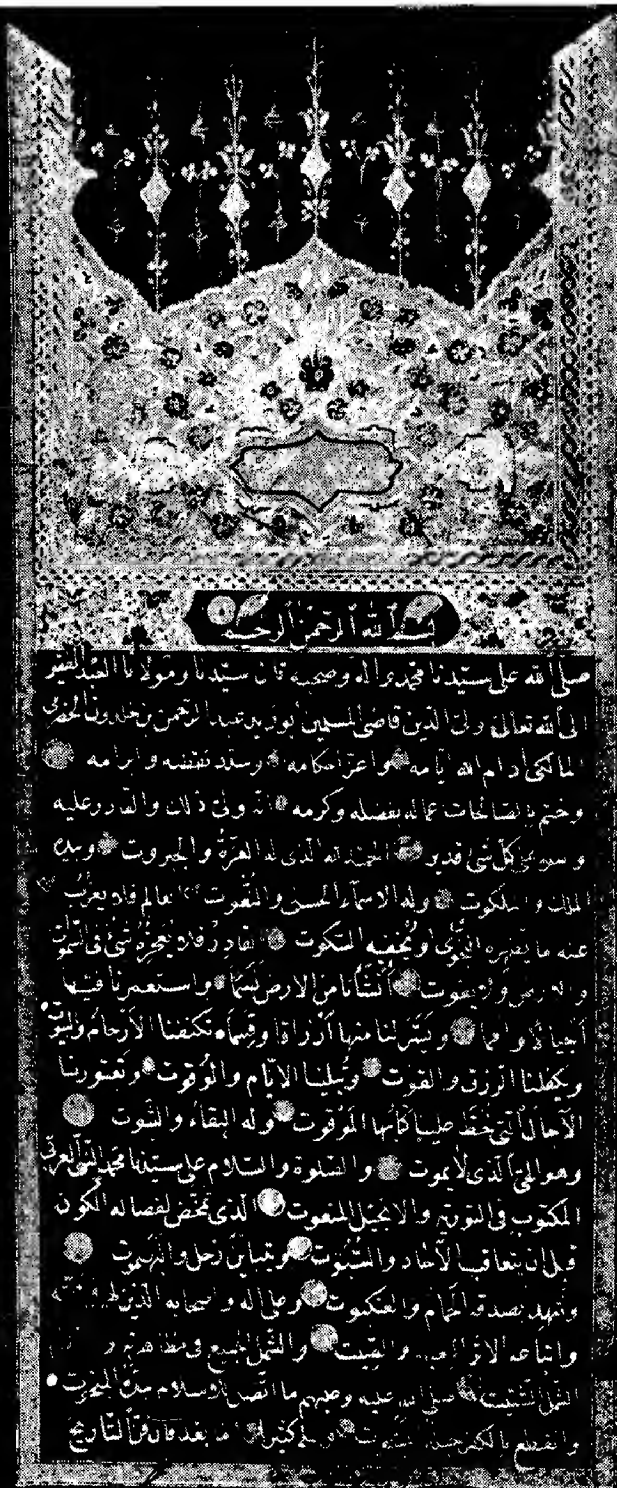 بسم الله الرحمن الرحيم
صلى الله على سيدنا محمد واله وصحبه قال سيدنا ومولانا العبد الفقير
الى الله تعالى ولى الدين قاضى المسلمين ابو زيد عبد الرحمن بن خلدون الحضرمى
المالكى ادام الله ايامه واعز احكامه وسدد نقضه وابرامه
وختم بالصالحات عمله بفضله وكرمه انه ولى ذلك والقادر عليه
وهو على كل شئ قدير الحمد لله الذى له العزة والجبروت وبيده
الملك والملكوت وله الاسماء الحسنى والنعوت العالم فلا يعزب
عنه ما تظهره النجوى او يخفيه السكوت القادر فلا يعجزه شئ فى السموت
والارض ولا يفوت أنشأنا من الارض نسما واستعمرنا فيها
أجيالا وامما ويسر لنا منها أرزاقا وقسما تكنفنا الأرحام والبيوت
ويكفلنا الرزق والقوت وتبلينا الأيام والوقوت وتعتورنا
الآجال التى خط علينا كتابها الموقوت وله البقاء والثبوت
وهو الحى الذى لا يموت والصلوة والسلام على سيدنا محمد النبى العربى
المكتوب فى التورية والانجيل المنعوت الذى تمخض لفصاله الكون
قبل ان يتعاقب الآحاد والسبوت ويتباين زحل والبهموت
وشهد بصدقه الحمام والعنكبوت وعلى اله واصحابه الذين لهم
واتباعه الاثر والصيت والشمل الجميع فى مظاهرته و
الشمل الشتيت صلى الله عليه وعليهم ما اتصل بالاسلام المبخوت
وانقطع بالكفر حبله وسلم كثيرا اما بعد فان فن التاريخ